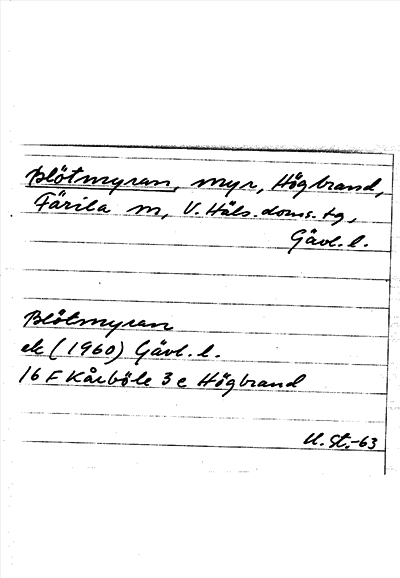 Blötmyran, myr, Högbrand,
Färila sn, V. Häls. doms. tg,
Gävl. l.
Blötmyran
ek (1960) Gävl. l.
16 F Kårböle 3 e Högbrand
U. St.-63